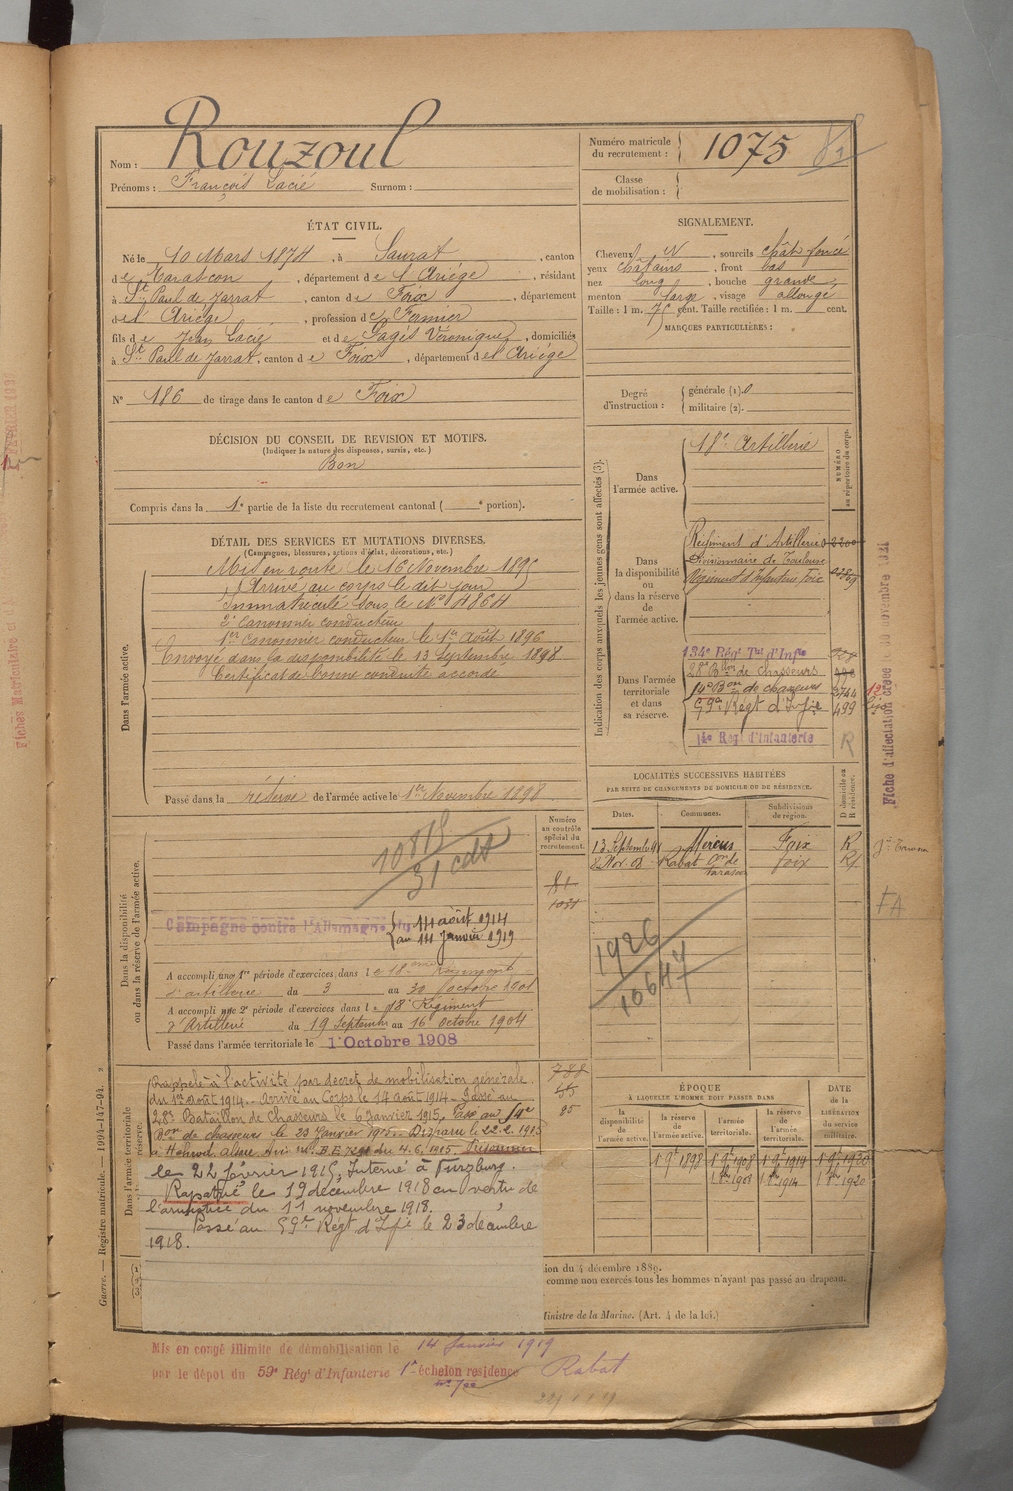 Nom : Rouzoul
Prénoms : François Lacié Surnom :
Numéro matricule du recrutement : 1075
Classe de mobilisation :
ÉTAT CIVIL.
Né le 10 Mars 1874, à Saurat, canton
de Tarascon, département de l'Ariége, résidant
à St Paul de Jarrat, canton de Foix, département
de l'Ariége, profession de Fermier
fils de Jean Lacié et de Pagés Véronique, domiciliés
à St Paul de Jarrat, canton de Foix, département de l'Ariége
N° 186 de tirage dans le canton de Foix
SIGNALEMENT.
Cheveux N, sourcils chât foncé
yeux châtains, front bas
nez long, bouche grande
menton large, visage allongé
Taille : 1 m. 75 cent. Taille rectifiée : 1 m. cent.
MARQUES PARTICULIÈRES :
Degré d'instruction : générale (1). 0
militaire (2).
DÉCISION DU CONSEIL DE REVISION ET MOTIFS.
(Indiquer la nature des dispenses, sursis, etc.)
Bon
Compris dans la 1e partie de la liste du recrutement cantonal ( e portion).
DÉTAIL DES SERVICES ET MUTATIONS DIVERSES.
(Campagnes, blessures, actions d'éclat, décorations, etc.)
Dans l'armée active.
Mis en route le 16 Novembre 1895
Arrivé au corps le dit jour
Immatriculé sous le N° 4864
2e canonnier conducteur
1er canonnier conducteur le 1er Août 1896
Envoyé dans la disponibilité le 13 Septembre 1898
Certificat de bonne conduite accordé
Passé dans la réserve de l'armée active le 1er Novembre 1898
Indication des corps auxquels les jeunes gens sont affectés (3).
NUMÉRO au répertoire du corps.
Dans l'armée active.
18e Artillerie
Dans la disponibilité ou dans la réserve de l'armée active.
Régiment d'Artillerie
Divisionnaire de Toulouse
Régiment d'Infanterie Foix
Dans l'armée territoriale et dans sa réserve.
134e Régt Tal d'Infie
28e Bon de chasseurs
54e Bon de chasseurs 3744
59e Regt d'Infie 499
14e Régt d'Infanterie R
LOCALITÉS SUCCESSIVES HABITÉES
PAR SUITE DE CHANGEMENTS DE DOMICILE OU DE RÉSIDENCE.
D domicile ou R résidence.
Dates. Communes. Subdivisions de région.
13 Septembre 98 Mercus Foix R
2 Nov. 08 Rabat con de Tarascon Foix R
1926
10647
Numéro au contrôle spécial du recrutement.
Dans la disponibilité ou dans la réserve de l'armée active.
Campagne contre l'Allemagne du 14 août 1914
au 14 Janvier 1919
A accompli une 1re période d'exercices dans le 18eme Régiment
d'artillerie du 3 au 30 Octobre 1901
A accompli une 2e période d'exercices dans le 18e Régiment
d'Artillerie du 19 Septembre au 16 Octobre 1904
Passé dans l'armée territoriale le 1 Octobre 1908
788
55
85
Rappelé à l'activité par décret de mobilisation générale
du 1er août 1914. Arrivé au Corps le 14 août 1914. Passé au
28e Bataillon de Chasseurs le 6 Janvier 1915. Passé au 54e
Bon de chasseurs le 23 Janvier 1915. Disparu le 22.2.1915
le 22 février 1915, Interné à
Rapatrié le 19 décembre 1918 en vertu de
l'armistice du 11 novembre 1918.
Passé au 59e Régt d'Infie le 23 décembre
1918.
ÉPOQUE
À LAQUELLE L'HOMME DOIT PASSER DANS
la disponibilité de l'armée active. la réserve de l'armée active. l'armée territoriale. la réserve de l'armée territoriale. DATE de la LIBÉRATION du service militaire.
1 9e 1898 1 9e 1908 1 9e 1914 1 9e 1920
ion du 4 décembre 1889.
comme non exercés tous les hommes n'ayant pas passé au drapeau.
Ministre de la Marine. (Art. 4 de la loi.)
Mis en congé illimité de démobilisation le 14 Janvier 1919
par le dépot du 59e Régt d'Infanterie 1er échelon residence Rabat
Guerre. — Registre matricule. — 1994-147-94.
Fiche d'affectation créée le novembre 1921
FA